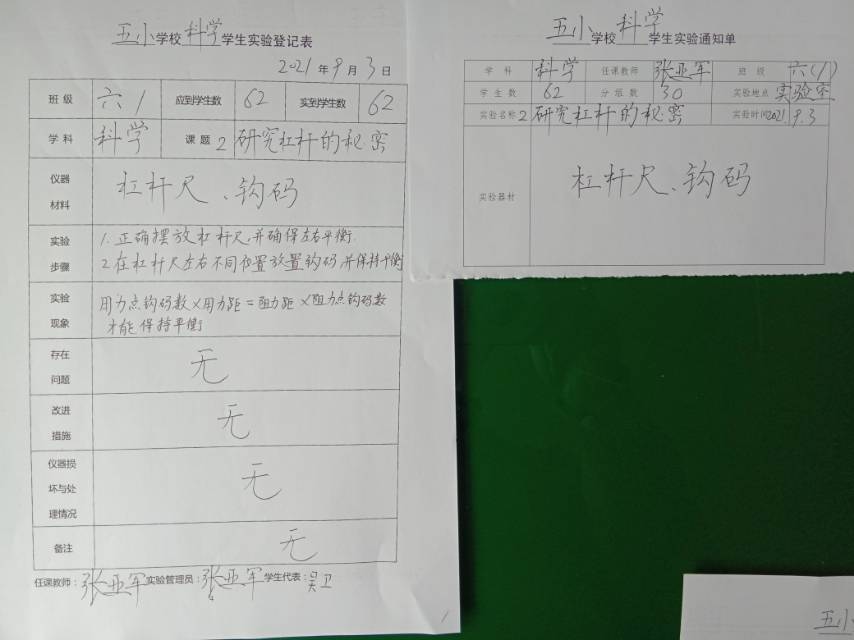 五小学校科学学生实验登记表
2021年9月3日
班级 六1 应到学生数 62 实到学生数 62
学科 科学 课题 2 研究杠杆的秘密
仪器材料 杠杆尺、钩码
实验步骤 1.正确摆放杠杆尺,并确保左右平衡.
2.在杠杆尺左右不同位置放置钩码并保持平衡
实验现象 用力点钩码数×用力距=阻力距×阻力点钩码数
才能保持平衡
存在问题 无
改进措施 无
仪器损坏与处理情况 无
备注 无
任课教师:张亚军 实验管理员:张亚军 学生代表:吴卫
五小学校科学学生实验通知单
学科 科学 任课教师 张亚军 班级 六(1)
学生数 62 分组数 30 实验地点 实验室
实验名称 2 研究杠杆的秘密 实验时间 2021.9.3
实验器材 杠杆尺、钩码
五小